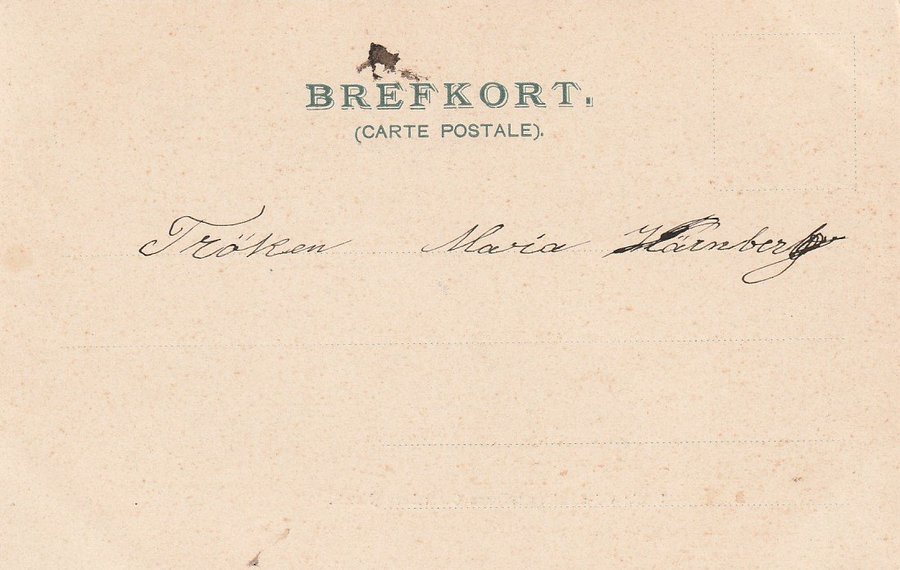 BREFKORT.
(CARTE POSTALE).
Fröken Maria Härnberg